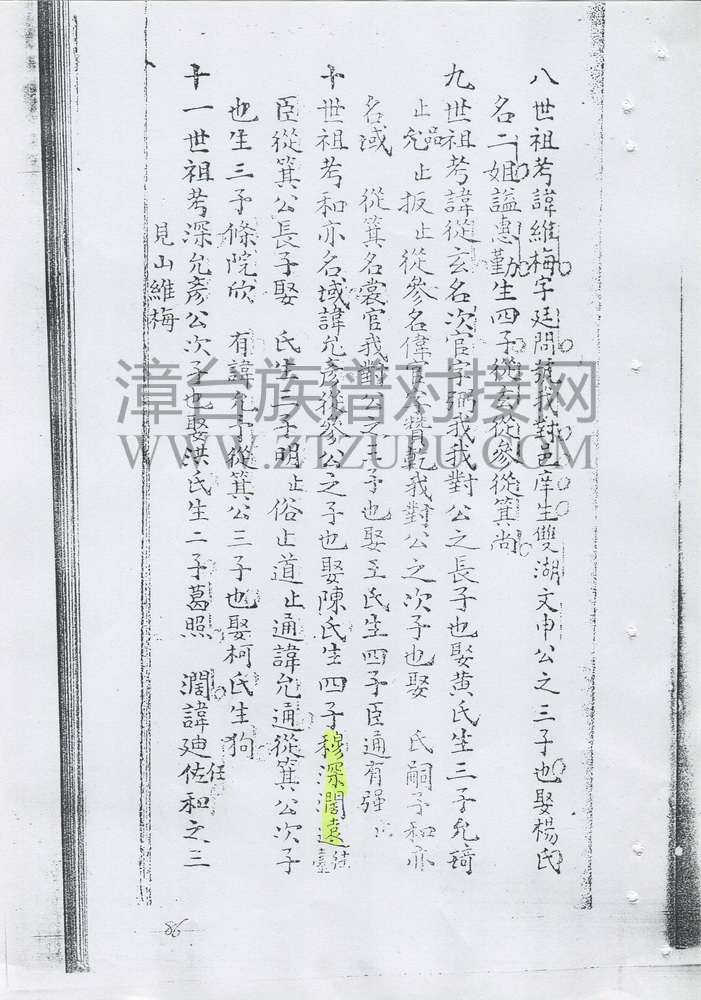 八世祖考諱維梅字廷問號我對邑庠生雙湖文申公之三子也娶楊氏
名二姐謚惠勤生四子從玄從參從箕尚
九世祖考諱從玄名次官字弼我我對公之長子也娶黄氏生三子允琦
止允品止振止從參名偉官字贊乾我對公之次子也娶 氏嗣子和亦
名域 從箕名裳官我對公之三子也娶王氏生四子臣通有强
十世祖考和亦名域諱允彥從參公之子也娶陳氏生四子穆深潤遠 往臺
臣從箕公長子娶 氏生三子明止俗止道止通諱允通從箕公次子
也生三子條院欣 有諱允守從箕公三子也娶柯氏生狗
十一世祖考深允彥公次子也娶洪氏生二子葛照 潤諱廸佐和之三
見山維梅
漳台族谱对接网
WWW.ZTZUPU.COM
86